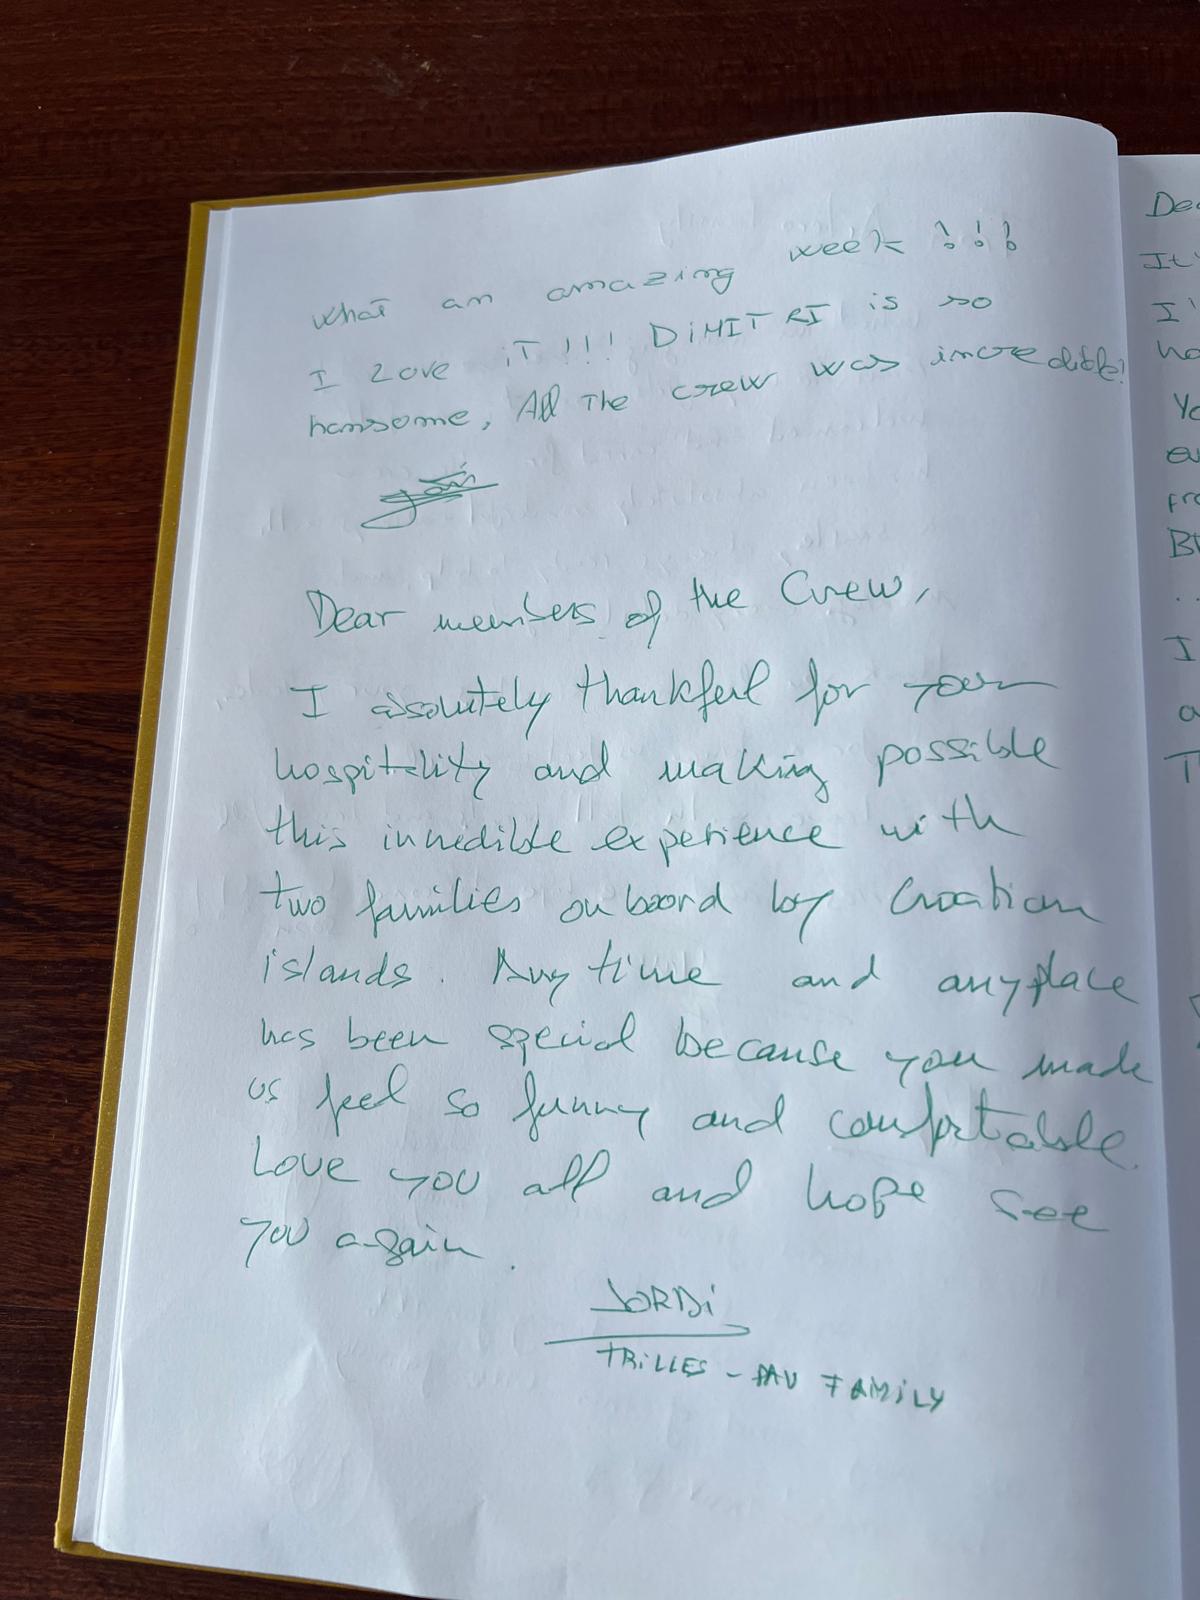 what an amazing week !!!
I Love iT!!! DiMITRI is so
hansome, All The crew was incredible!
Dear members of the Crew,
I absolutely thankful for your
hospitality and making possible
this incredible experience with
two families on board by Croatian
islands. Any time and any place
has been special because you made
us feel so funny and comfortable.
Love you all and hope see
you again.
JORDi
TRiLLES - PAU FAMiLY
Dea
It'
I'
ha
Yo
fro
Bu
...
I
a
T